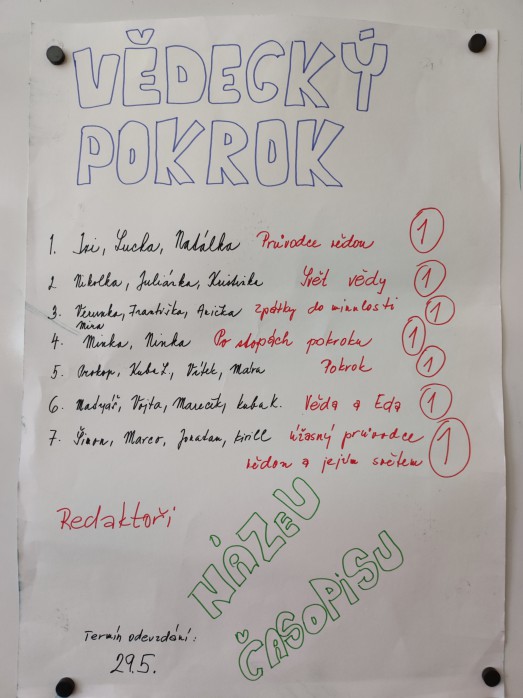 VĚDECKÝ
POKROK
1. Izi, Lucka, Natálka Průvodce vědou 1
2. Nikolka, Juliánka, Kristinka Svět vědy 1
3. Verunka, Františka, Anička Zpátky do minulosti 1
Mína
4. Minka, Ninka Po stopách pokroku 1
5. Prokop, Kuba Z., Vítek, Matra Pokrok 1
6. Matyáš, Vojta, Mareček, Kuba K. Věda a Eda 1
7. Šimon, Marco, Jonatan, Kirill Úžasný průvodce 1
vědou a jejím světem
Redaktoři
NÁZEV
ČASOPISU
Termín odevzdání:
29.5.